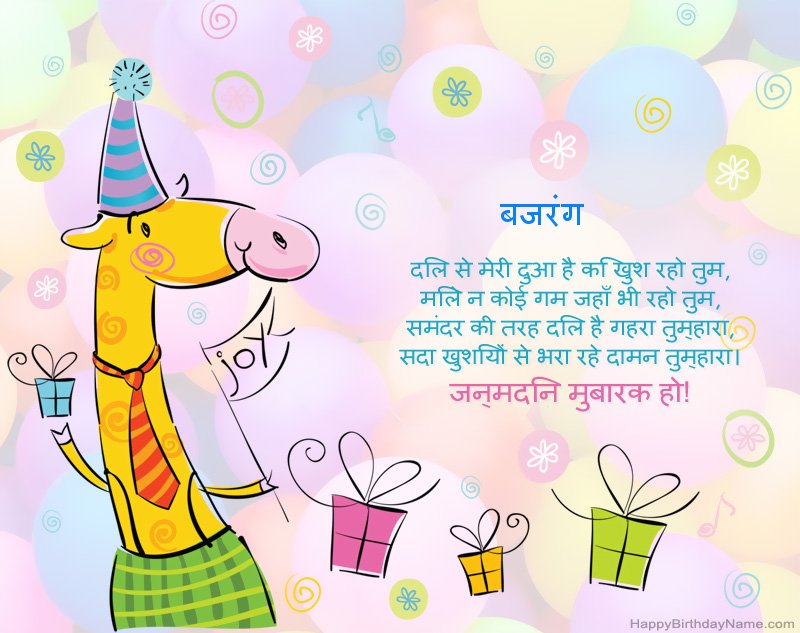 बजरंग
दलि से मेरी दुआ है कि खुश रहो तुम,
मलिे न कोई गम जहाँ भी रहो तुम,
समंदर की तरह दलि है गहरा तुम्‌हारा,
सदा खुशयिों से भरा रहे दामन तुम्‌हारा।
जन्‌मदनि मुबारक हो!
joy
HappyBirthdayName.com